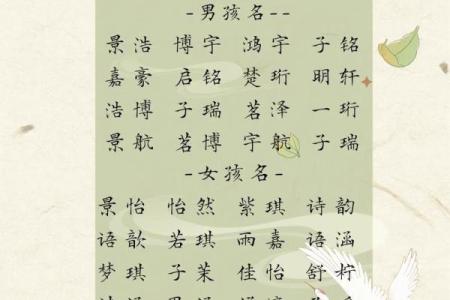 -男孩名--
景浩 博宇 鸿宇 子铭
嘉豪 启铭 楚珩 明轩
浩博 子瑞 茗泽 一珩
景航 茗博 宇航 子瑞
-女孩名-
景怡 怡然 紫琪 诗韵
语歆 若琪 雨嘉 语涵
梦琪 子茉 佳怡 舒柠